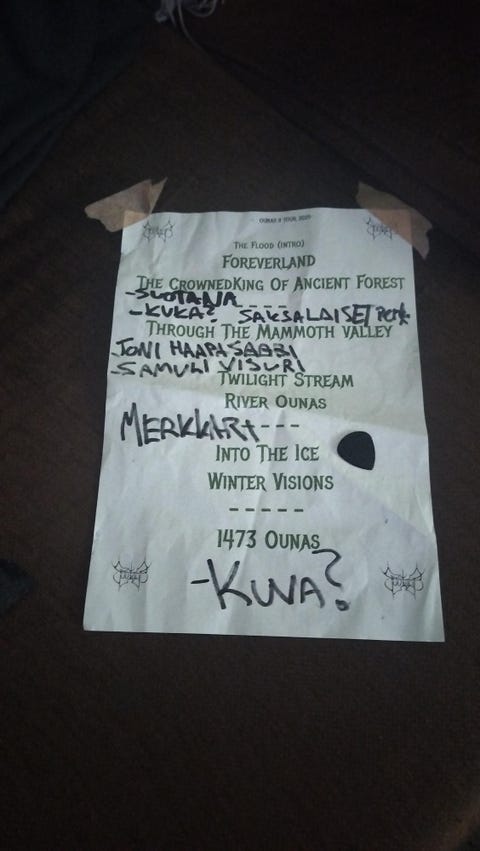 OUNAS II TOUR 2025
THE FLOOD (INTRO)
FOREVERLAND
THE CROWNEDKING OF ANCIENT FOREST
-SUOTANA - - - -
-KUKA? SAKSALAISET
THROUGH THE MAMMOTH VALLEY
JONI HAAPASAARI
-SAMULI VISURI
TWILIGHT STREAM
RIVER OUNAS
MERKKARI - - -
INTO THE ICE
WINTER VISIONS
- - - - -
1473 OUNAS
-KUVA?